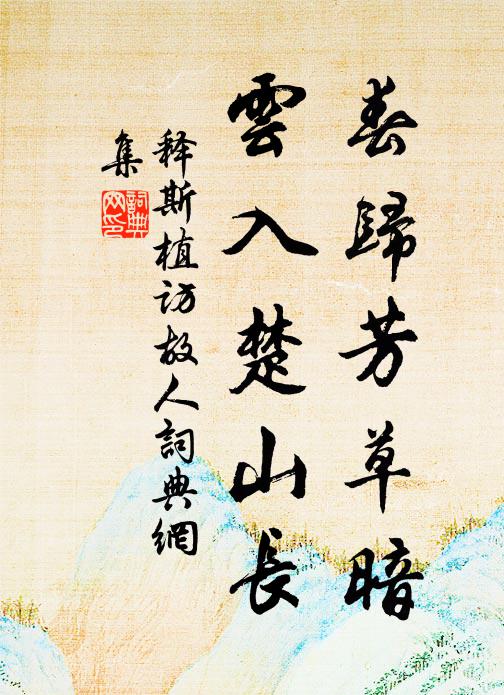 春歸芳草暗
雲入楚山長
释斯植访故人詞典網
集
詞典
网印